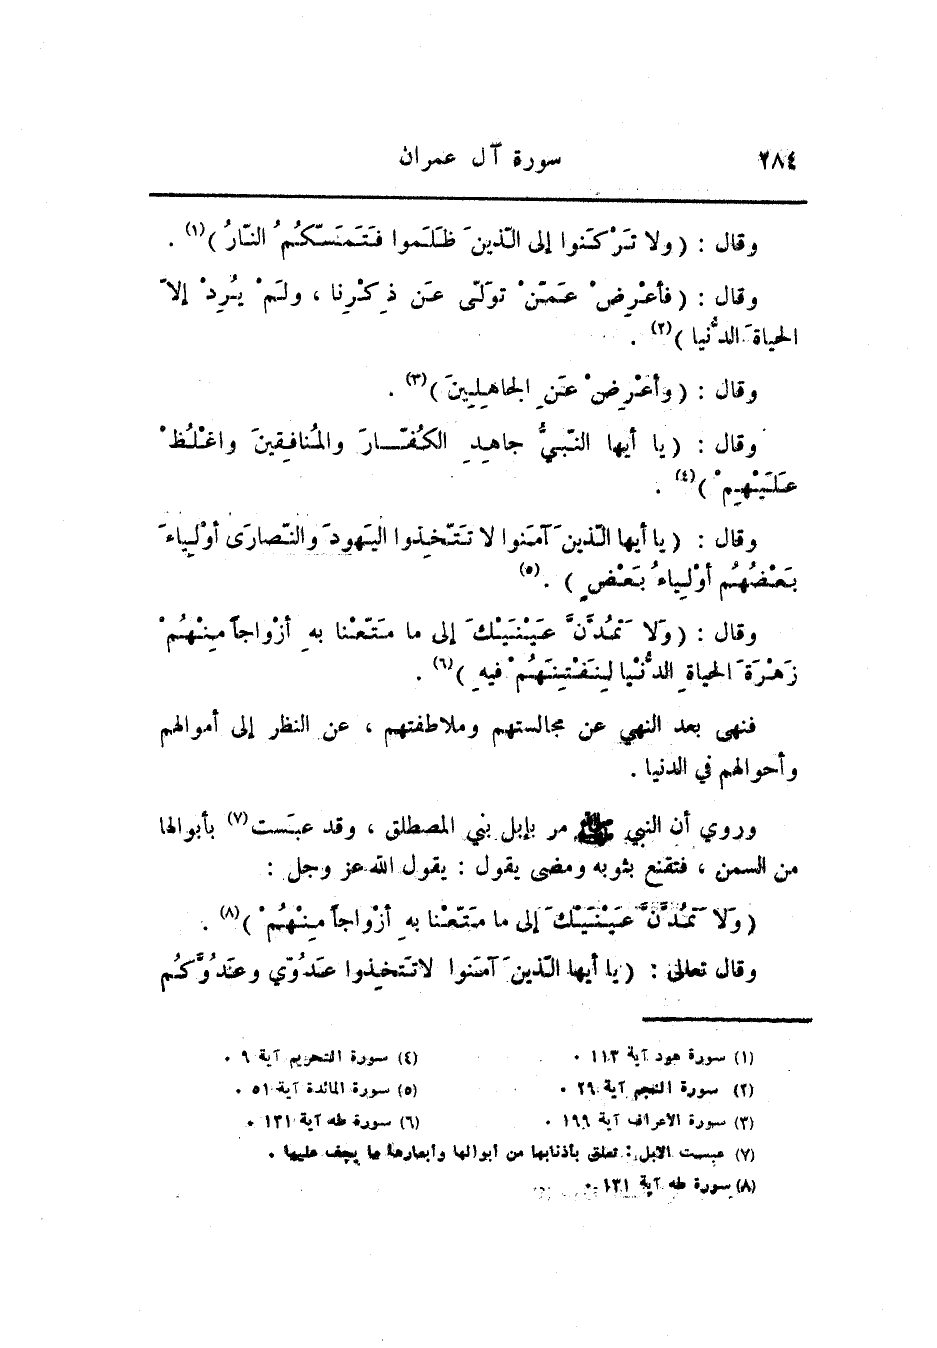 ٢٨٤
سورة آل عمران
وقال : ( ولا تَرْكَنوا إلى الّذينَ ظَلَموا فَتَمَسّكُمُ النّارُ )(١) .
وقال : ( فأعْرِضْ عَمّنْ توَلّى عَن ذِكْرِنا ، ولَمْ يُرِدْ إلاّ
الحياةَ الدُّنيا )(٢) .
وقال : ( وأعْرِضْ عَنِ الجاهِلِينَ )(٣) .
وقال : ( يا أيها النّبيُّ جاهِدِ الكُفّـارَ والمُنافِقينَ واغْلُظْ
عَلَيْهِمْ )(٤) .
وقال : ( يا أيها الّذينَ آمَنوا لا تَتّخِذوا اليَهودَ والنّصارَى أوْلِياءَ
بَعْضُهُم أوْلِياءُ بَعْضٍ ) .(٥)
وقال : ( وَلا تَمُدَّنَّ عَيْنَيْكَ إلى ما مَتّعْنا بهِ أزْواجاً مِنْهُمْ
زَهْرَةَ الحياةِ الدُّنْيا لِنَفْتِنَهُمْ فيهِ )(٦) .
فنهى بعد النهي عن مجالستهم وملاطفتهم ، عن النظر إلى أموالهم
وأحوالهم في الدنيا .
وروي أن النبي ﷺ مر بإبل بني المصطلق ، وقد عبَست(٧) بأبوالها
من السمن ، فتقنع بثوبه ومضى يقول : يقول الله عز وجل :
( وَلا تَمُدَّنَّ عَيْنَيْكَ إلى ما مَتّعْنا بهِ أزْواجاً مِنْهُمْ )(٨) .
وقال تعالى : ( يا أيها الّذينَ آمَنوا لاتَتّخِذوا عَدُوّي وعَدُوَّكُم
(١) سورة هود آية ١١٣ .
(٢) سورة النجم آية ٢٩ .
(٣) سورة الأعراف آية ١٩٩ .
(٤) سورة التحريم آية ٩ .
(٥) سورة المائدة آية ٥١ .
(٦) سورة طه آية ١٣١ .
(٧) عبست الابل : تعلق بأذنابها من أبوالها وأبعارها ما يجف عليها .
(٨) سورة طه آية ١٣١ .